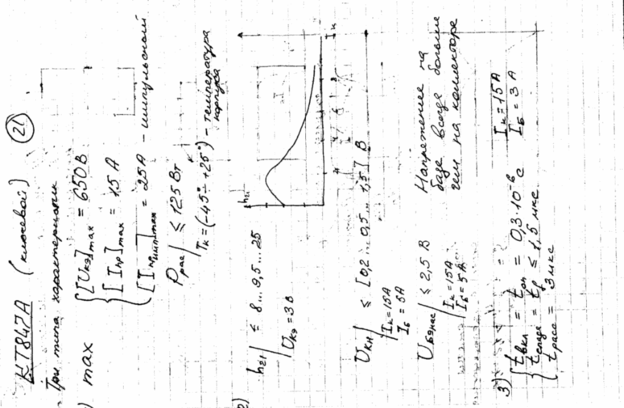 КТ847А (ключевой) 21
Три типа характеристик
) max { [Uкэ]max = 650 В
[Iкр]max = 15 А
[Iк имп]max = 25А - импульсный
Pрас | ≤ 125 Вт
Tк = (-45° +25°) - температура корпуса
2)
h21 | ≤ 8...9,5...25
Uкэ = 3 В
h21
Iк
Uкн | ≤ [0,2...0,5...1,5] В
Iк = 15А
Iб = 5А
Uбэнас | ≤ 2,5 В
Iк = 15А
Iб = 5А
Напряжение на
базе всегда больше
чем на коллекторе
3) { tвкл = tоп = 0,3·10⁻⁶ с
tспада = tр ≤ 1,5 мкс
tрасс = 3 мкс
Iк = 15А
Iб = 3А